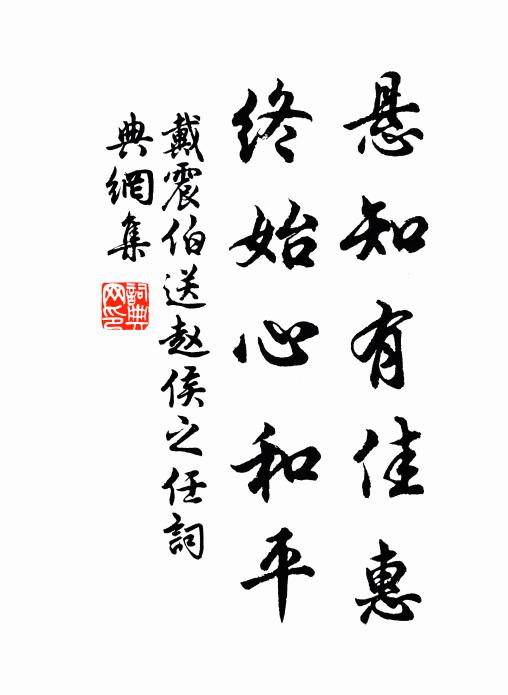 悬知有佳惠
终始心和平
戴震伯送赵侯之任詞
典網集
詞典網印